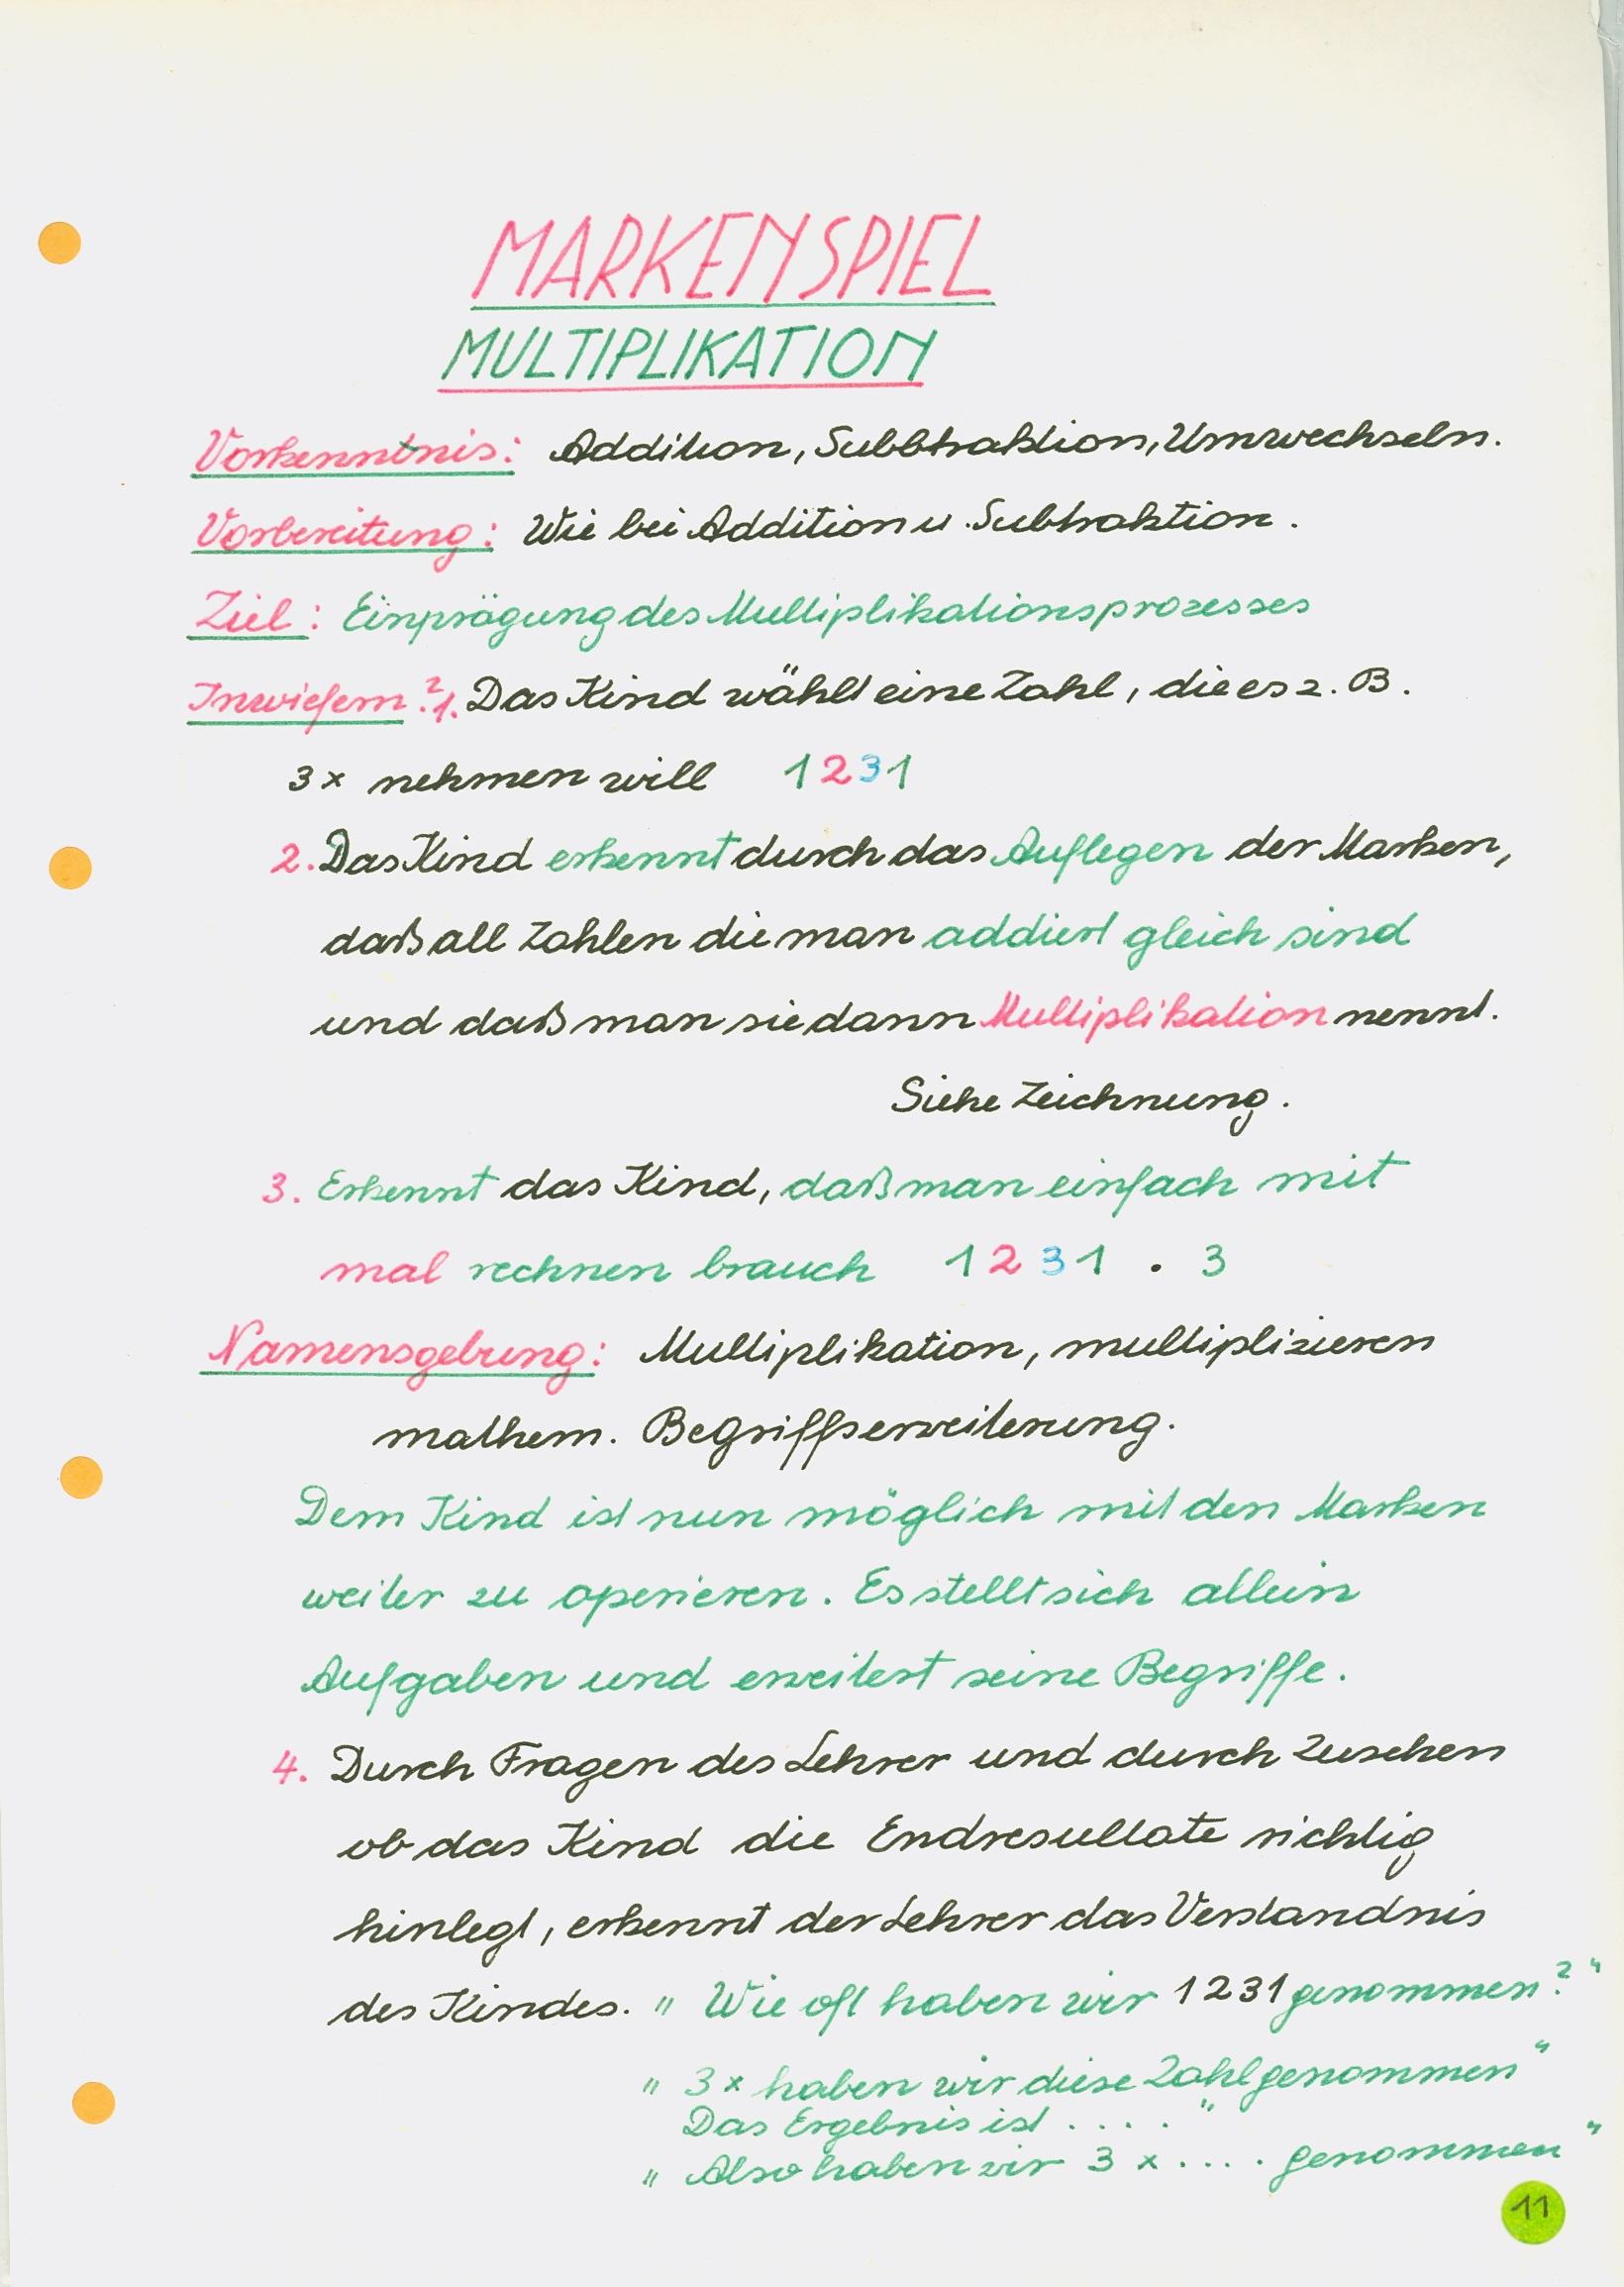 MARKENSPIEL
MULTIPLIKATION
Vorkenntnis: Addition, Subbtraktion, Umwechseln.
Vorbereitung: Wie bei Addition u. Subtraktion.
Ziel: Einprägung des Multiplikationsprozesses
Inwiefern? 1. Das Kind wählt eine Zahl, die es z. B.
3x nehmen will 1231
2. Das Kind erkennt durch das Auflegen der Marken,
daß all Zahlen die man addiert gleich sind
und daß man sie dann Multiplikation nennt.
Siehe Zeichnung.
3. Erkennt das Kind, daß man einfach mit
mal rechnen brauch 1231 . 3
Namensgebung: Multiplikation, multiplizieren
mathem. Begriffserweiterung.
Dem Kind ist nun möglich mit den Marken
weiter zu operieren. Es stellt sich allein
Aufgaben und erweitert seine Begriffe.
4. Durch Fragen des Lehrer und durch Zusehen
ob das Kind die Endresultate richtig
hinlegt, erkennt der Lehrer das Verstandnis
des Kindes. " Wie oft haben wir 1231 genommen? "
" 3x haben wir diese Zahl genommen "
Das Ergebnis ist . . . . "
" Also haben wir 3 x . . . . genommen "
11